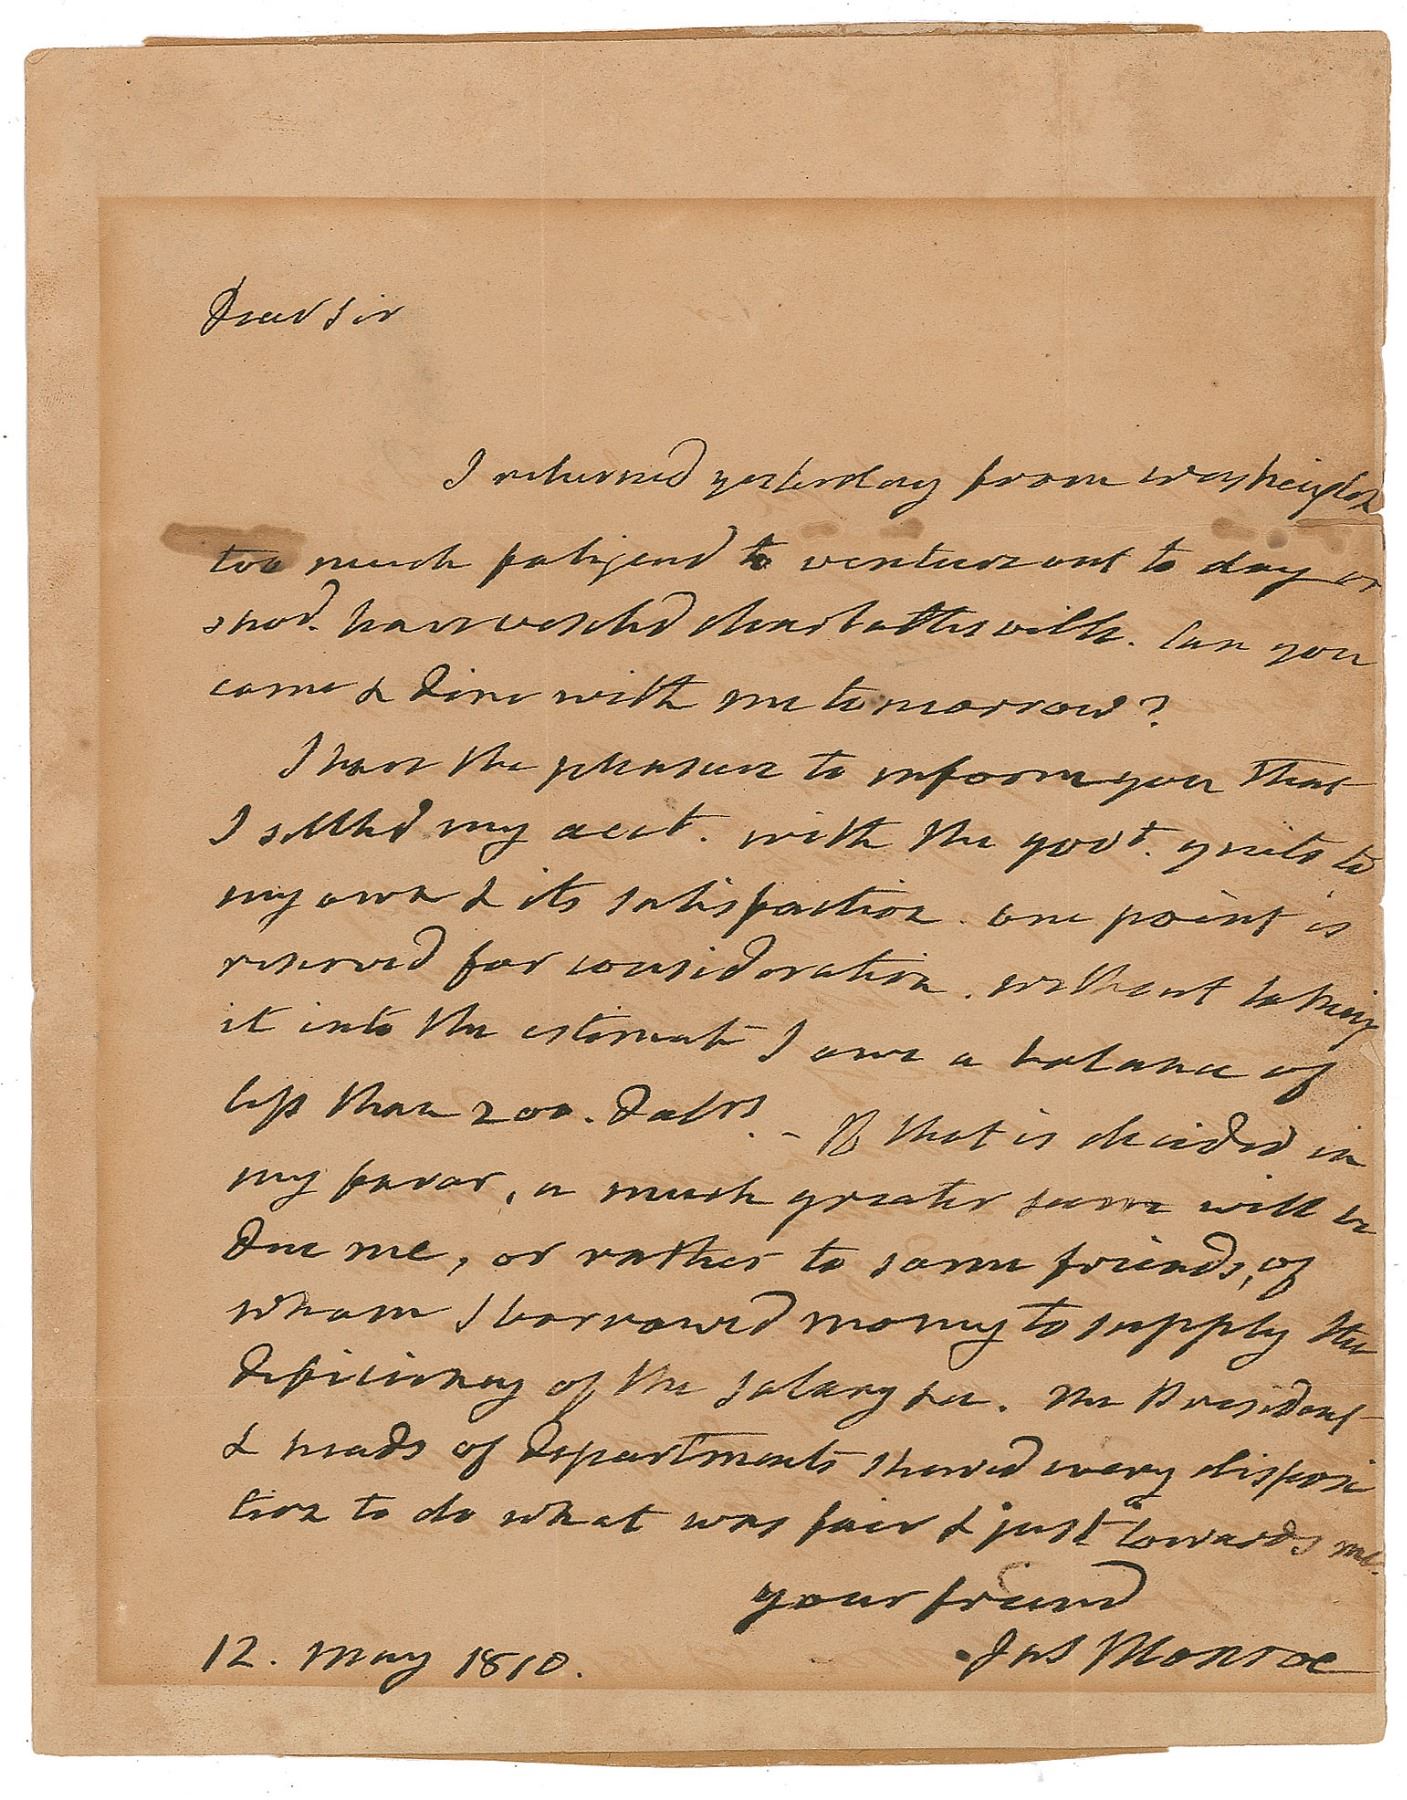 Dear Sir
I returned yesterday from Washington
too much fatigued to venture out to day or
shod. have visited Charlottesville. Can you
come & dine with me tomorrow?
I have the pleasure to inform you that
I settled my acct. with the govt. quite to
my own & its satisfaction. one point is
reserved for consideration. without taking
it into the estimate I owe a balance of
less than 200. Dolrs. – If that is decided in
my favor, a much greater sum will be
due me, or rather to some friends, of
whom I borrowed money to supply the
deficiency of the salary &c. The President
& heads of departments shewed every disposi
tion to do what was fair & just towards me.
your friend
Jas Monroe
12. May 1810.